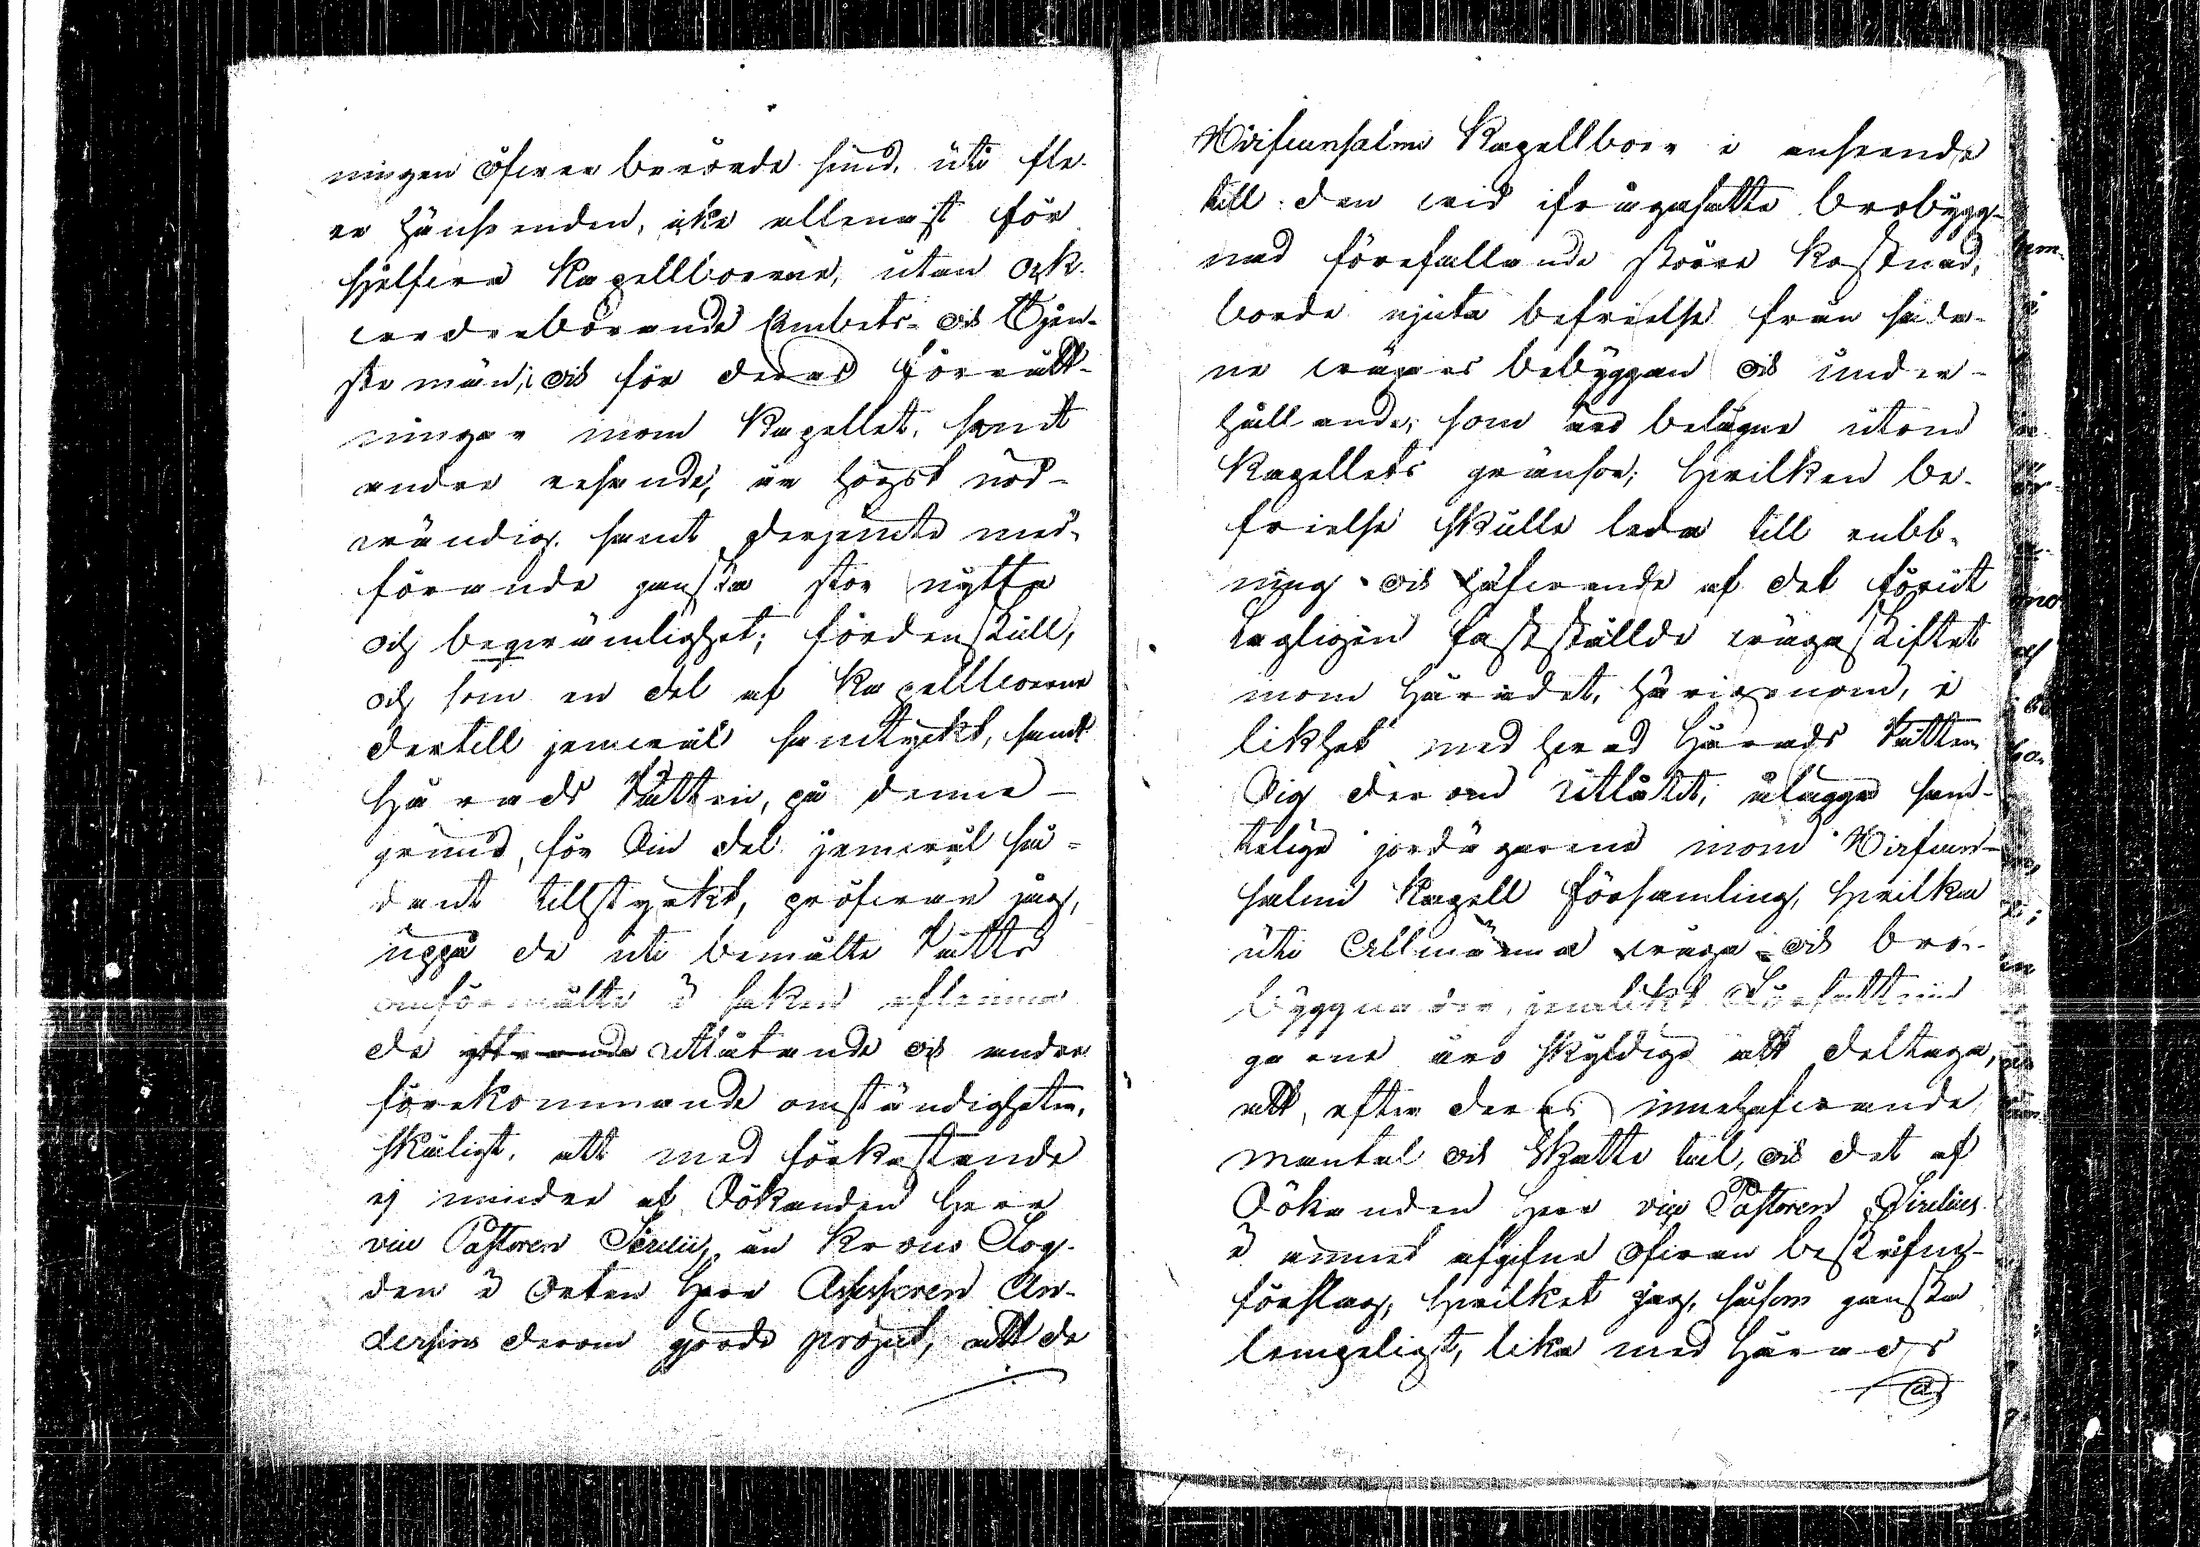 ningen öfver berörde sund, uti fle-
re hänseenden, icke allenast för
sjelfva Kapellboerne, utan ock
vederbörande Embets- och Tjen-
stemän, och för deras förrätt-
ningar inom Kapellet, samt
andre resande, är högst nöd-
vändig, samt derjemte med-
förande ganska stor nytta
och beqvämlighet; fördenskull,
och som en del af Kapellboerne
dertill jemväl samtyckt, samt
Härads Rätten, på denne
grund, för Sin del jemväl så-
dant tillstyrkt, pröfvar jag,
uppå de uti bemälte Rätts
omförmälte i saken aflemna
de yttrande utlåtande och andre
förekommande omständigheter,
skäligt, att med förkastande
ej mindre af Sökanden Herr
vice Pastoren Sirelii, än Krono Fog-
den i Orten Herr Assessoren An-
dersins derom gjorde project, att de
Wirfvansalmi Kapellboer i anseende
till den vid ifrågasatte brobygg-
nad förefallande större kostnad,
borde njuta befrielse från såda-
ne vägars bebyggan och under-
hållande, som äro belägne utom
Kapellets gränsor; hvilken be-
frielse skulle leda till rubb-
ning och häfvande af det förut
lagligen fastställde vägaskiftet
inom Häradet, härigenom, i
likhet med hvad Härads Rätten
Sig derom utlåtit, ålägga sam-
telige jordägarene inom Wirfvan-
salmi Kapell församling, hvilka
uti Allmänna väga- och bro-
byggnader, jemlikt Författnin
garne äro skyldige att deltaga,
att, efter deras innehafvande
mantal och Skatte tal, och det af
Sökanden Herr vice Pastoren Sirelius
i ämnet afgifne ofvan beskrifne
förslag, hvilket jag, såsom ganska
lempeligt, lika med Härads